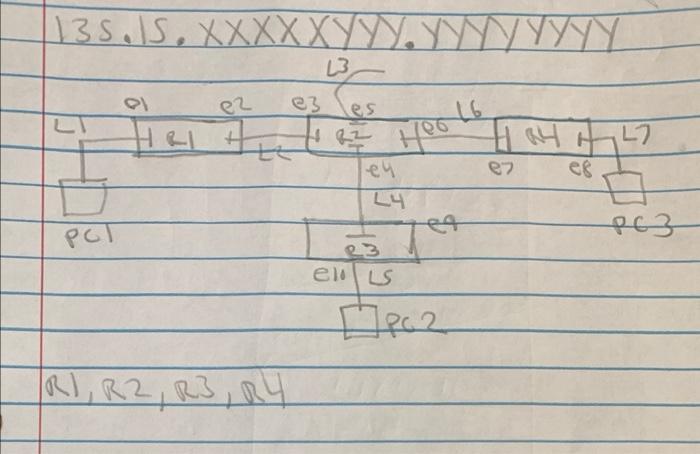 135.15.XXXXXYYY.YYYYYYYY
L3
e1 e2 e3 e5 L6
L1 R1 L2 R2 e6 R4 L7
e4 e7 e8
L4
PC1 e9 PC3
R3
e10 L5
PC2
R1, R2, R3, R4